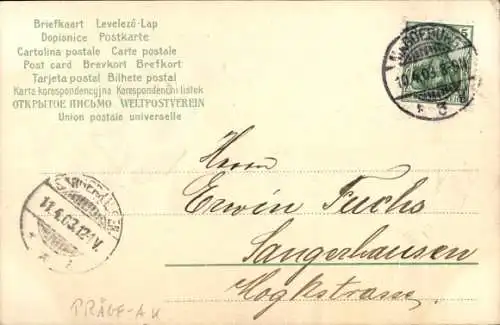 Briefkaart Levelező-Lap
Dopisnice Postkarte
Cartolina postale Carte postale
Post card Brevkort Brefkort
Tarjeta postal Bilhete postal
Karta korespondencyjna Korespondenční listek
ОТКРЫТОЕ ПИСЬМО WELTPOSTVEREIN
Union postale universelle
5
MAGDEBURG
10.4.03.
Herrn
Erwin Fuchs
SANGERHAUSEN
11.4.03.
Sangerhausen
PRÄGE-AK